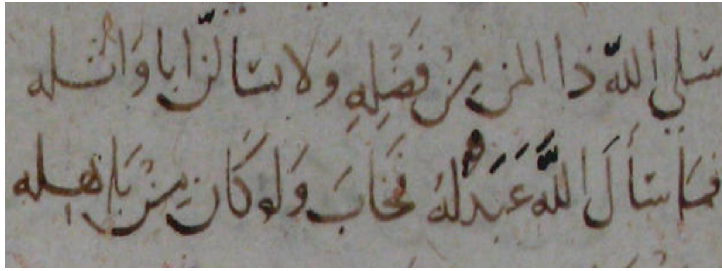 سلي الله ذا المن مِنْ فَضْلِهِ وَلا تسألنّ ابا وَاثله
فما سأَلَ اللَّهَ عَبَدٌ لهُ فخابَ وَلو كَان مِنْ بَاهله